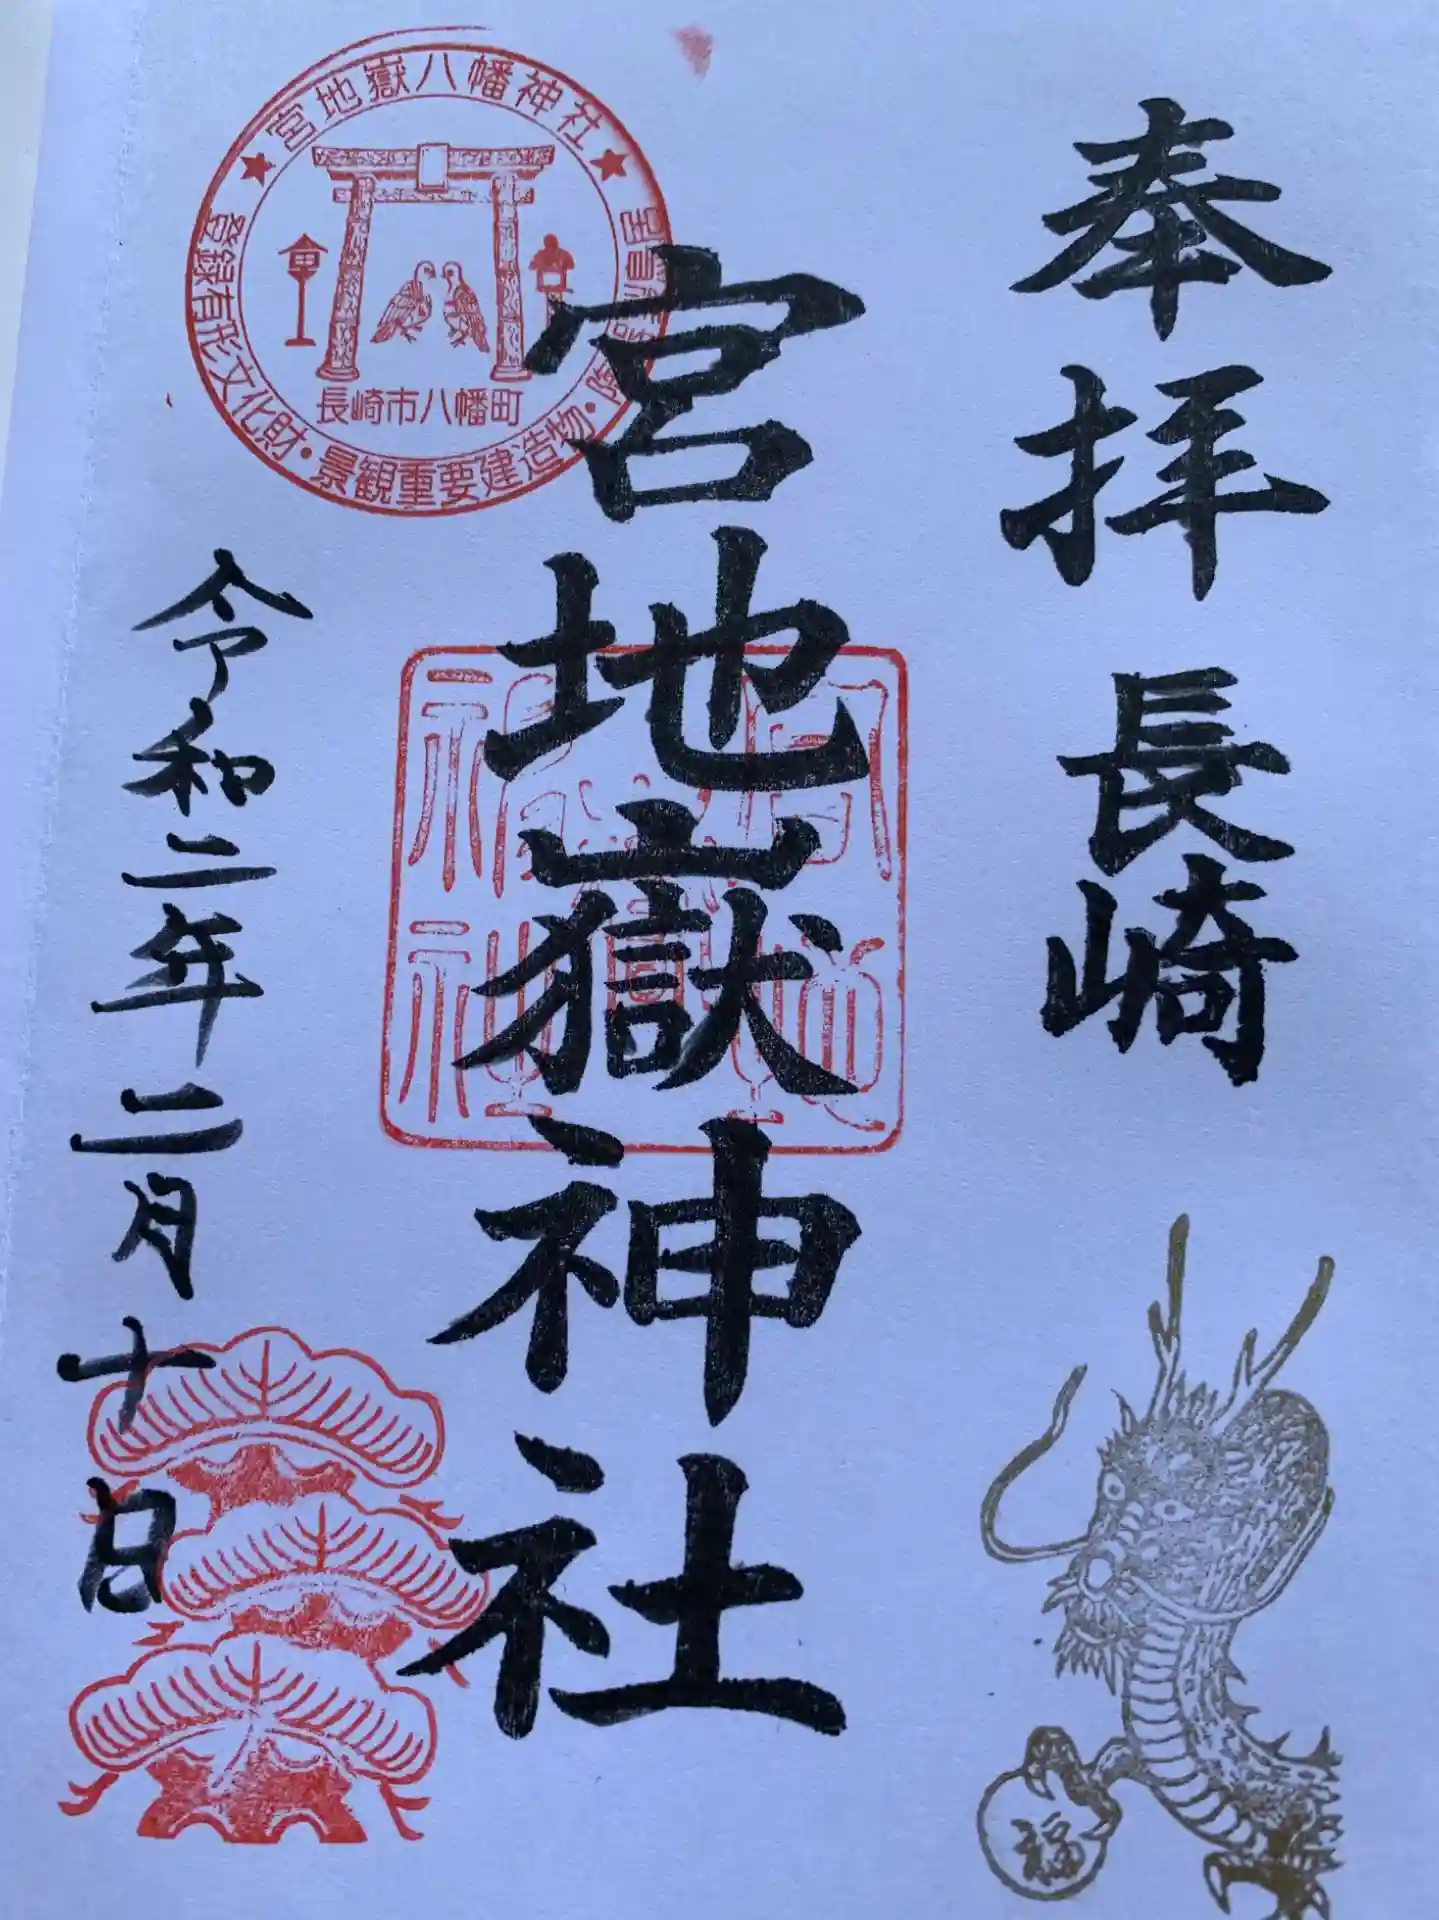 奉拝 長崎
宮地嶽神社
令和二年二月十日
宮地嶽八幡神社
登録有形文化財・景観重要建造物・
長崎市八幡町
福